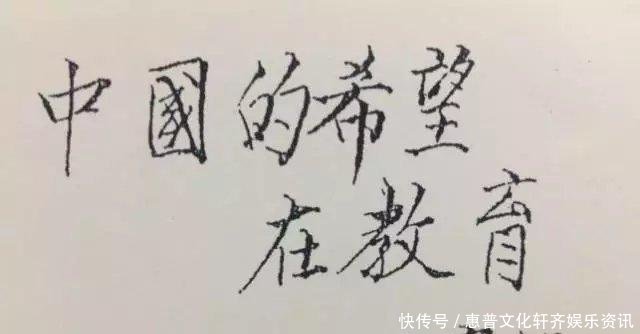 中國的希望
在教育
快传号／惠普文化轩齐娱乐资讯